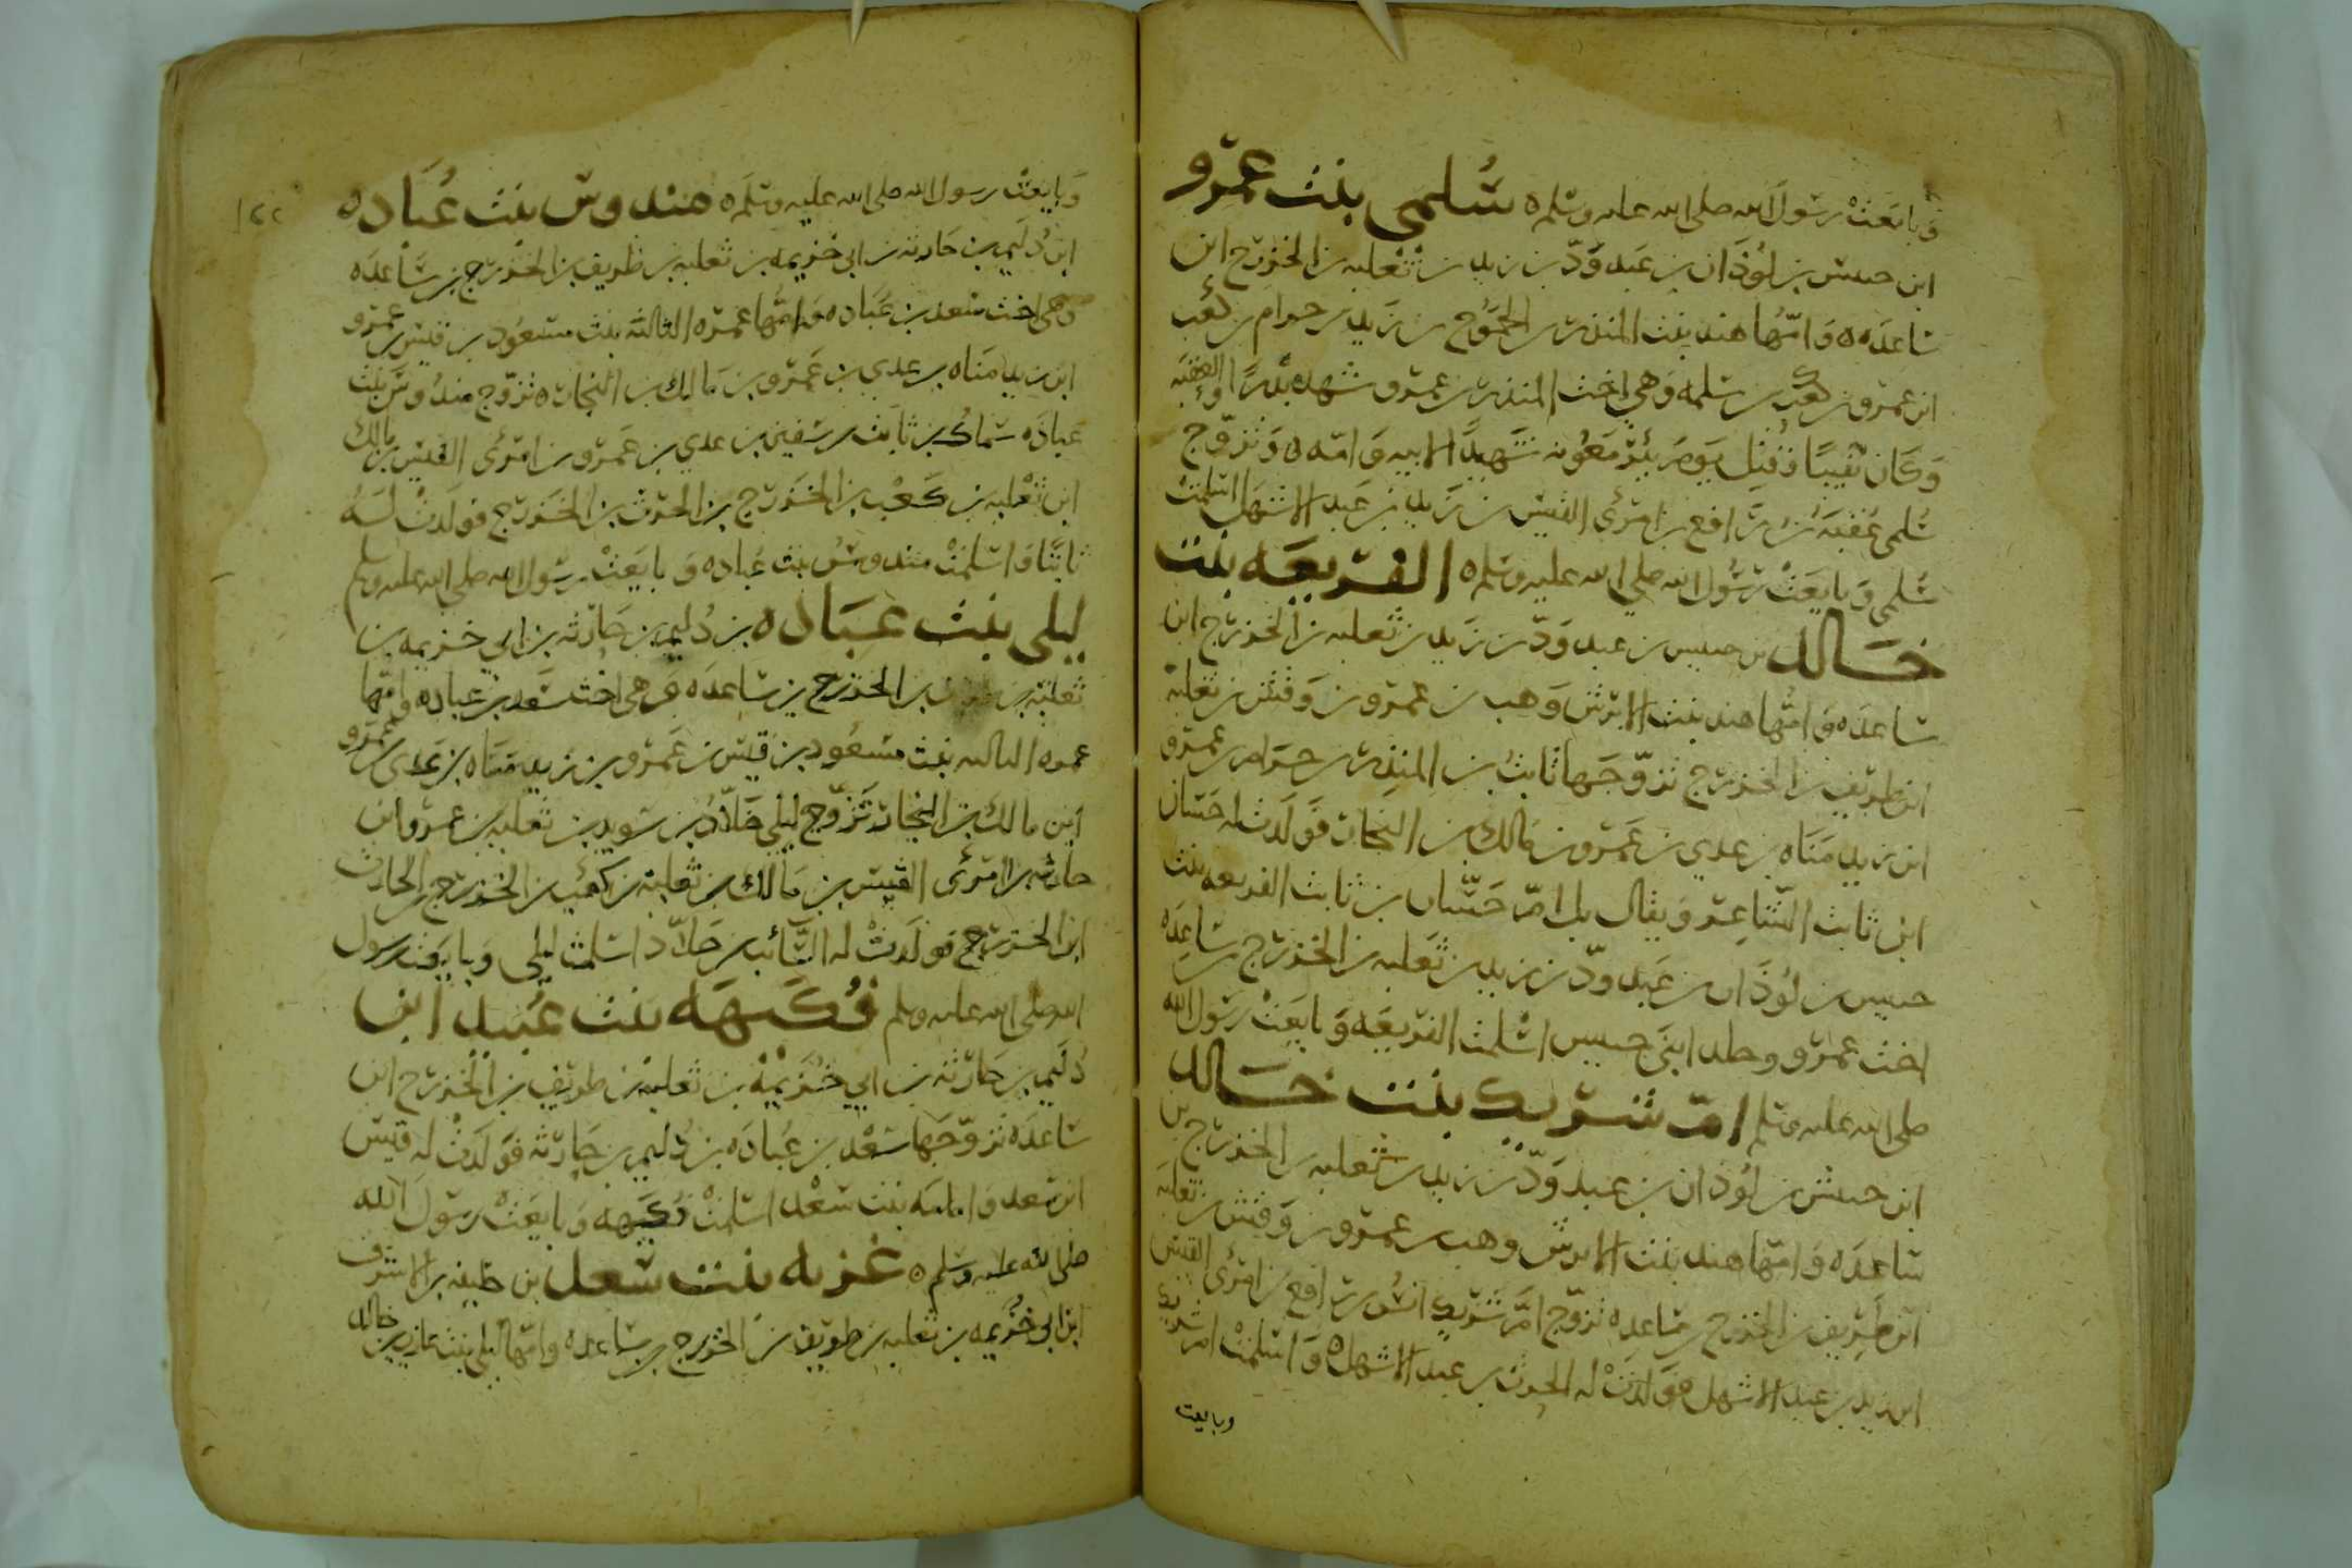 وبايعت رسول الله صلى الله عليه وسلم ه سلمى بنت عمرو
ابن حبيش بن لوذان بن عبد ود بن زيد بن ثعلبه بن الخزرج ابن
ساعده ه وامها هند بنت المنذر بن الجموح بن زيد بن حرام بن كعب
ابن عمرو بن كعب بن سلمه وهي اخت المنذر بن عمرو شهد بدرا والعقبه
وكان نقيبا وقتل يوم بئر معونه شهيدا لابيه وامه ه وتزوج
سلمى عقبه بن رافع بن امرئ القيس بن زيد بن عبد الاشهل اسلمت
سلمى وبايعت رسول الله صلى الله عليه وسلم ه الفريعه بنت
خالد بن حبيس بن عبد ود بن زيد بن ثعلبه بن الخزرج ابن
ساعده وامها هند بنت الابرش وهب بن عمرو بن وقش بن ثعلبه
ابن طريف بن الخزرج تزوجها ثابت بن المنذر بن حرام بن عمرو
ابن زيد مناه بن عدي بن عمرو بن مالك بن النجار فولدت له حسان
ابن ثابت الشاعر ويقال بل ام حسان بن ثابت الفريعه بنت
حبيس بن لوذان بن عبد ود بن زيد بن ثعلبه بن الخزرج بن ساعده
اخت عمرو وخلد ابنى حبيس اسلمت الفريعه وبايعت رسول الله
صلى الله عليه وسلم ام شريك بنت خالد
ابن حبيش بن لوذان بن عبد ود بن زيد بن ثعلبه بن الخزرج بن
ساعده وامها هند بنت الابرش وهب بن عمرو بن وقش بن ثعلبه
ابن طريف بن الخزرج بن ساعده تزوج ام شريك انس بن رافع بن امرئ القيس
ابن زيد بن عبد الاشهل فولدت له الحرث بن عبد الاشهل ه واسلمت ام شريك
وبايعت
١٢٢
وبايعت رسول الله صلى الله عليه وسلم ه مندوس بنت عباده
ابن دليم بن حارثه بن ابي خزيمه بن ثعلبه بن طريف بن الخزرج بن ساعده
وهي اخت سعد بن عباده وامها عمره الثالثه بنت مسعود بن قيس بن عمرو
ابن زيد مناه بن عدي بن عمرو بن مالك بن النجار ه تزوج مندوس بنت
عباده سماك بن ثابت بن سفين بن عدي بن عمرو بن امرئ القيس بن مالك
ابن ثعلبه بن كعب بن الخزرج بن الحرث بن الخزرج فولدت له
ثابتا واسلمت مندوس بنت عباده وبايعت رسول الله صلى الله عليه وسلم
ليلى بنت عباده بن دليم بن حارثه بن ابي خزيمه بن
ثعلبه بن طريف بن الخزرج بن ساعده وهي اخت سعد بن عباده وامها
عمره الثالثه بنت مسعود بن قيس بن عمرو بن زيد مناه بن عدي بن عمرو
ابن مالك بن النجار تزوج ليلى خلاد بن سويد بن ثعلبه بن عمرو ابن
حارثه بن امرئ القيس بن مالك بن ثعلبه بن كعب بن الخزرج بن الحارث
ابن الخزرج فولدت له السائب بن خلاد اسلمت ليلى وبايعت رسول
الله صلى الله عليه وسلم فكيهه بنت عبيد ابن
دليم بن حارثه بن ابي خزيمه بن ثعلبه بن طريف بن الخزرج ابن
ساعده تزوجها سعد بن عباده بن دليم بن حارثه فولدت له قيس
ابن سعد وامامه بنت سعد اسلمت فكيهه وبايعت رسول الله
صلى الله عليه وسلم ه غزيه بنت سعد بن خليفه بن الاشرف
ابن ابي خزيمه بن ثعلبه بن طريف بن الخزرج بن ساعده وامها ليلى بنت عازب بن خالد